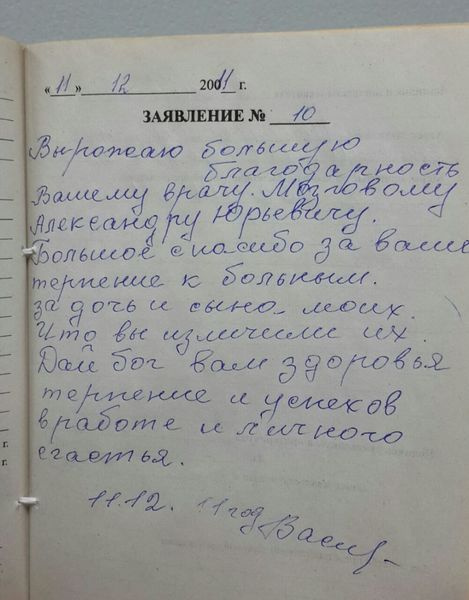 «11» 12 2011 г.
ЗАЯВЛЕНИЕ № 10
Вырожаю большую
благодарность
Вашему врачу. Мозговому
Александру Юрьевичу.
Большое спасибо за ваше
терпение к больным.
за дочь и сына моих.
Что вы изличили их.
Дай бог вам здоровья
терпение и успехов
в работе и личного
счастья.
11.12. 11 год
г.
г.